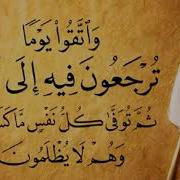 وَٱتَّقُوا۟ يَوْمًا
تُرْجَعُونَ فِيهِ إِلَى
ثُمَّ تُوَفَّىٰ كُلُّ نَفْسٍ مَّا
وَهُمْ لَا يُظْلَمُونَ